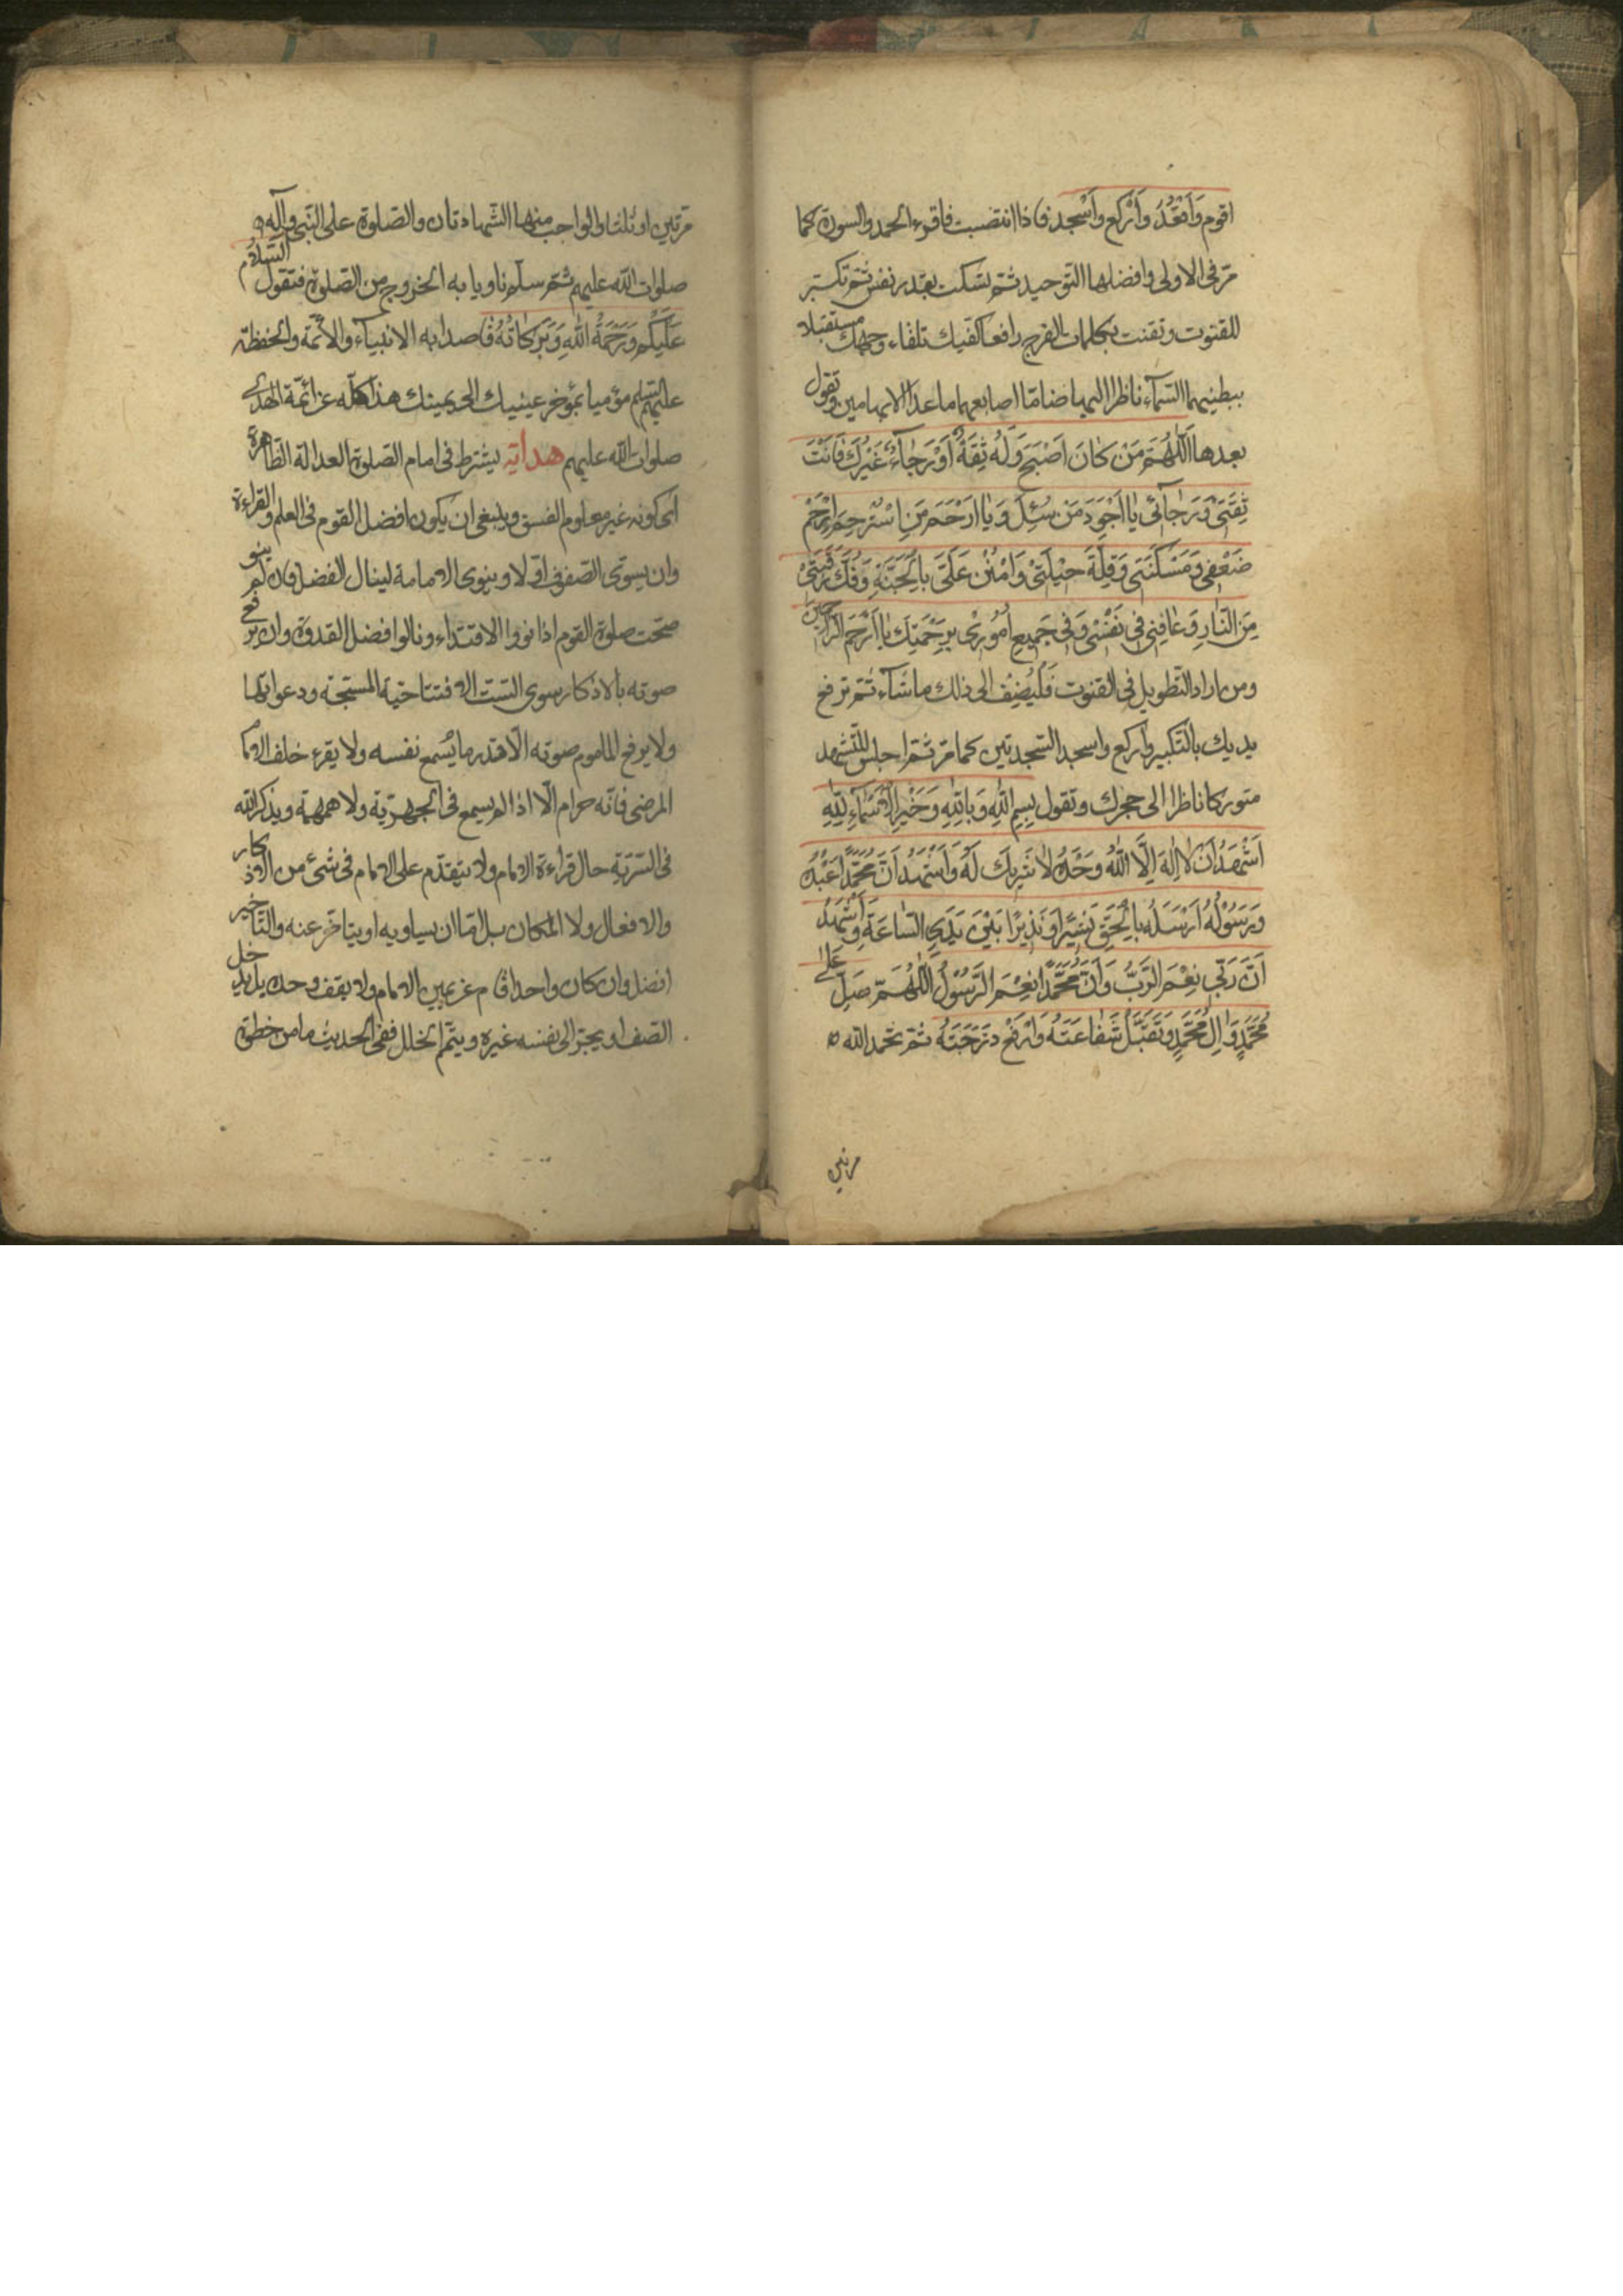 اقوم وَاَقْعُدُ وَاَرْكَع وَاَسْجد فاذا انتصبت فاقرء الحمد والسورة كما
مرّ فى الاولى وافضلها التوحيد ثم تسكت بقدر نفس ثم تكبّر
للقنوت وتقنت بكلمات الفرج رافعا كفّيك تلقاء وجهك مستقبلا
ببطنيهما السّماء ناظرا اليهما ضامّا اصابعهما ما عدا الابهامين وتقول
بعدها اَللّٰهُمَّ مَنْ كٰانَ اَصْبَحَ وَلَهُ ثِقَةٌ اَوْ رَجٰاءٌ غَيْرُكَ فَاَنْتَ
ثِقَتى وَرَجٰآئى يٰا اَجْوَدَ مَنْ سُئِلَ وَيٰا اَرْحَمَ مَنِ اسْتُرْحِمَ اِرْحَمْ
ضَعْفى وَمَسْكَنَتى وَقِلَّةَ حيْلَتىْ وَامْنُنْ عَلَىَّ بِالْجَنَّةِ وَفُكَّ رَقَبَتىْ
مِنَ النّٰارِ وَعٰافِنى فى نَفْسْى وَفى جَميعِ اُمُورْى بِرَحْمَتِكَ يٰا اَرْحَمَ الرّٰاحِمينَ
ومن اراد التطويل فى القنوت فَلْيُضِفْ الى ذلك ما شآء ثمّ ترفع
يديك بالتكبير واركع واسجد السجدتين كما مرّ ثمّ اجلس للتّشهد
متوركا ناظرا الى حجرك وتقول بِسْمِ اللّٰهِ وَبِاللّٰهِ وَخَيْرِ الْاَسْمآءِ لِلّٰهِ
اَشْهَدُ اَنْ لٰا اِلٰهَ اِلَّا اللّٰهُ وَحْدَهُ لٰا شَرِيكَ لَهُ وَاَشْهَدُ اَنَّ مُحَمَّدًا عَبْدُهُ
وَرَسُوْلُهُ اَرْسَلَهُ بِالْحَقِّ بَشيرًا وَنَذيرًا بَيْنَ يَدَىِ السّٰاعَةِ وَاَشْهَدُ
اَنَّ رَبّى نِعْمَ الرَّبُّ وَاَنَّ مُحَمَّدًا نِعْمَ الرَّسُوْلُ اَللّٰهُمَّ صَلِّ عَلٰى
مُحَمَّدٍ وَاٰلِ مُحَمَّدٍ وَتَقَبَّلْ شَفٰاعَتَهُ وَارْفَعْ دَرَجَتَهُ ثمّ تحمد الله
مرتين
مرّتين او ثلثا والواجب منها الشّهادتان والصّلوة على النّبى وآله
صلوات الله عليهم ثمّ سلّم ناويا به الخروج من الصّلوة فتقول السّلٰامُ
عَلَيْكُمْ وَرَحْمَةُ اللّٰهِ وَبَرَكٰاتُهُ قاصدا به الانبيآء والائمّة والحفظة
عليهم السلم مؤميا بمؤخر عينيك الى يمينك هذا كلّه عن ائمّة الهدى
صلوات الله عليهم هداية يشترط فى امام الصّلوة العدالة الظّاهرة
اى كونه غير معلوم الفسق وينبغى ان يكون افضل القوم فى العلم والقراءة
وان يسوّى الصّفوف اوّلا وينوى الامامة لينال الفضل فان لم ينو
صحّت صلوة القوم اذا نووا الاقتداء ونالوا فضل القدوة وان يرفع
صوته بالاذكار سوى الستّ الافتتاحيّة المستحبّة ودعواتها
ولا يرفع الماموم صوته الّا قدر ما يُسْمع نفسه ولا يقرء خلف الامام
المرضى فانّه حرام الّا اذا لم يسمع فى الجهريّة ولا همهمة ويذكر الله
فى السّريّة حال قراءة الامام ولا يتقدّم على الامام فى شئ من الاذكار
والافعال ولا المكان بل امّا ان يساويه او يتاخّر عنه والتّاخير
افضل وان كان واحدا قام عن يمين الامام ولا يقف وحده بل يدخل
الصّف او يجرّ الى نفسه غيره ويتمّم الخلل ففى الحديث ما من خطوة